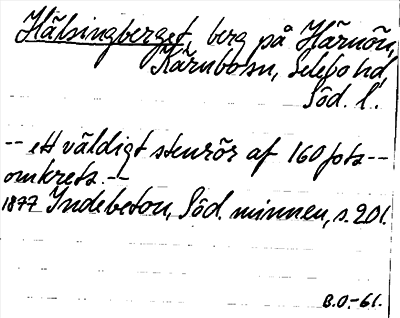 Hälsingberget, berg på Härnön,
Kärnbo sn, Selebo hd,
Söd. l.
-- ett väldigt stenrör af 160 fots --
omkrets. --
1877 Indebetou, Söd. minnen, s. 201.
B.O.-61.